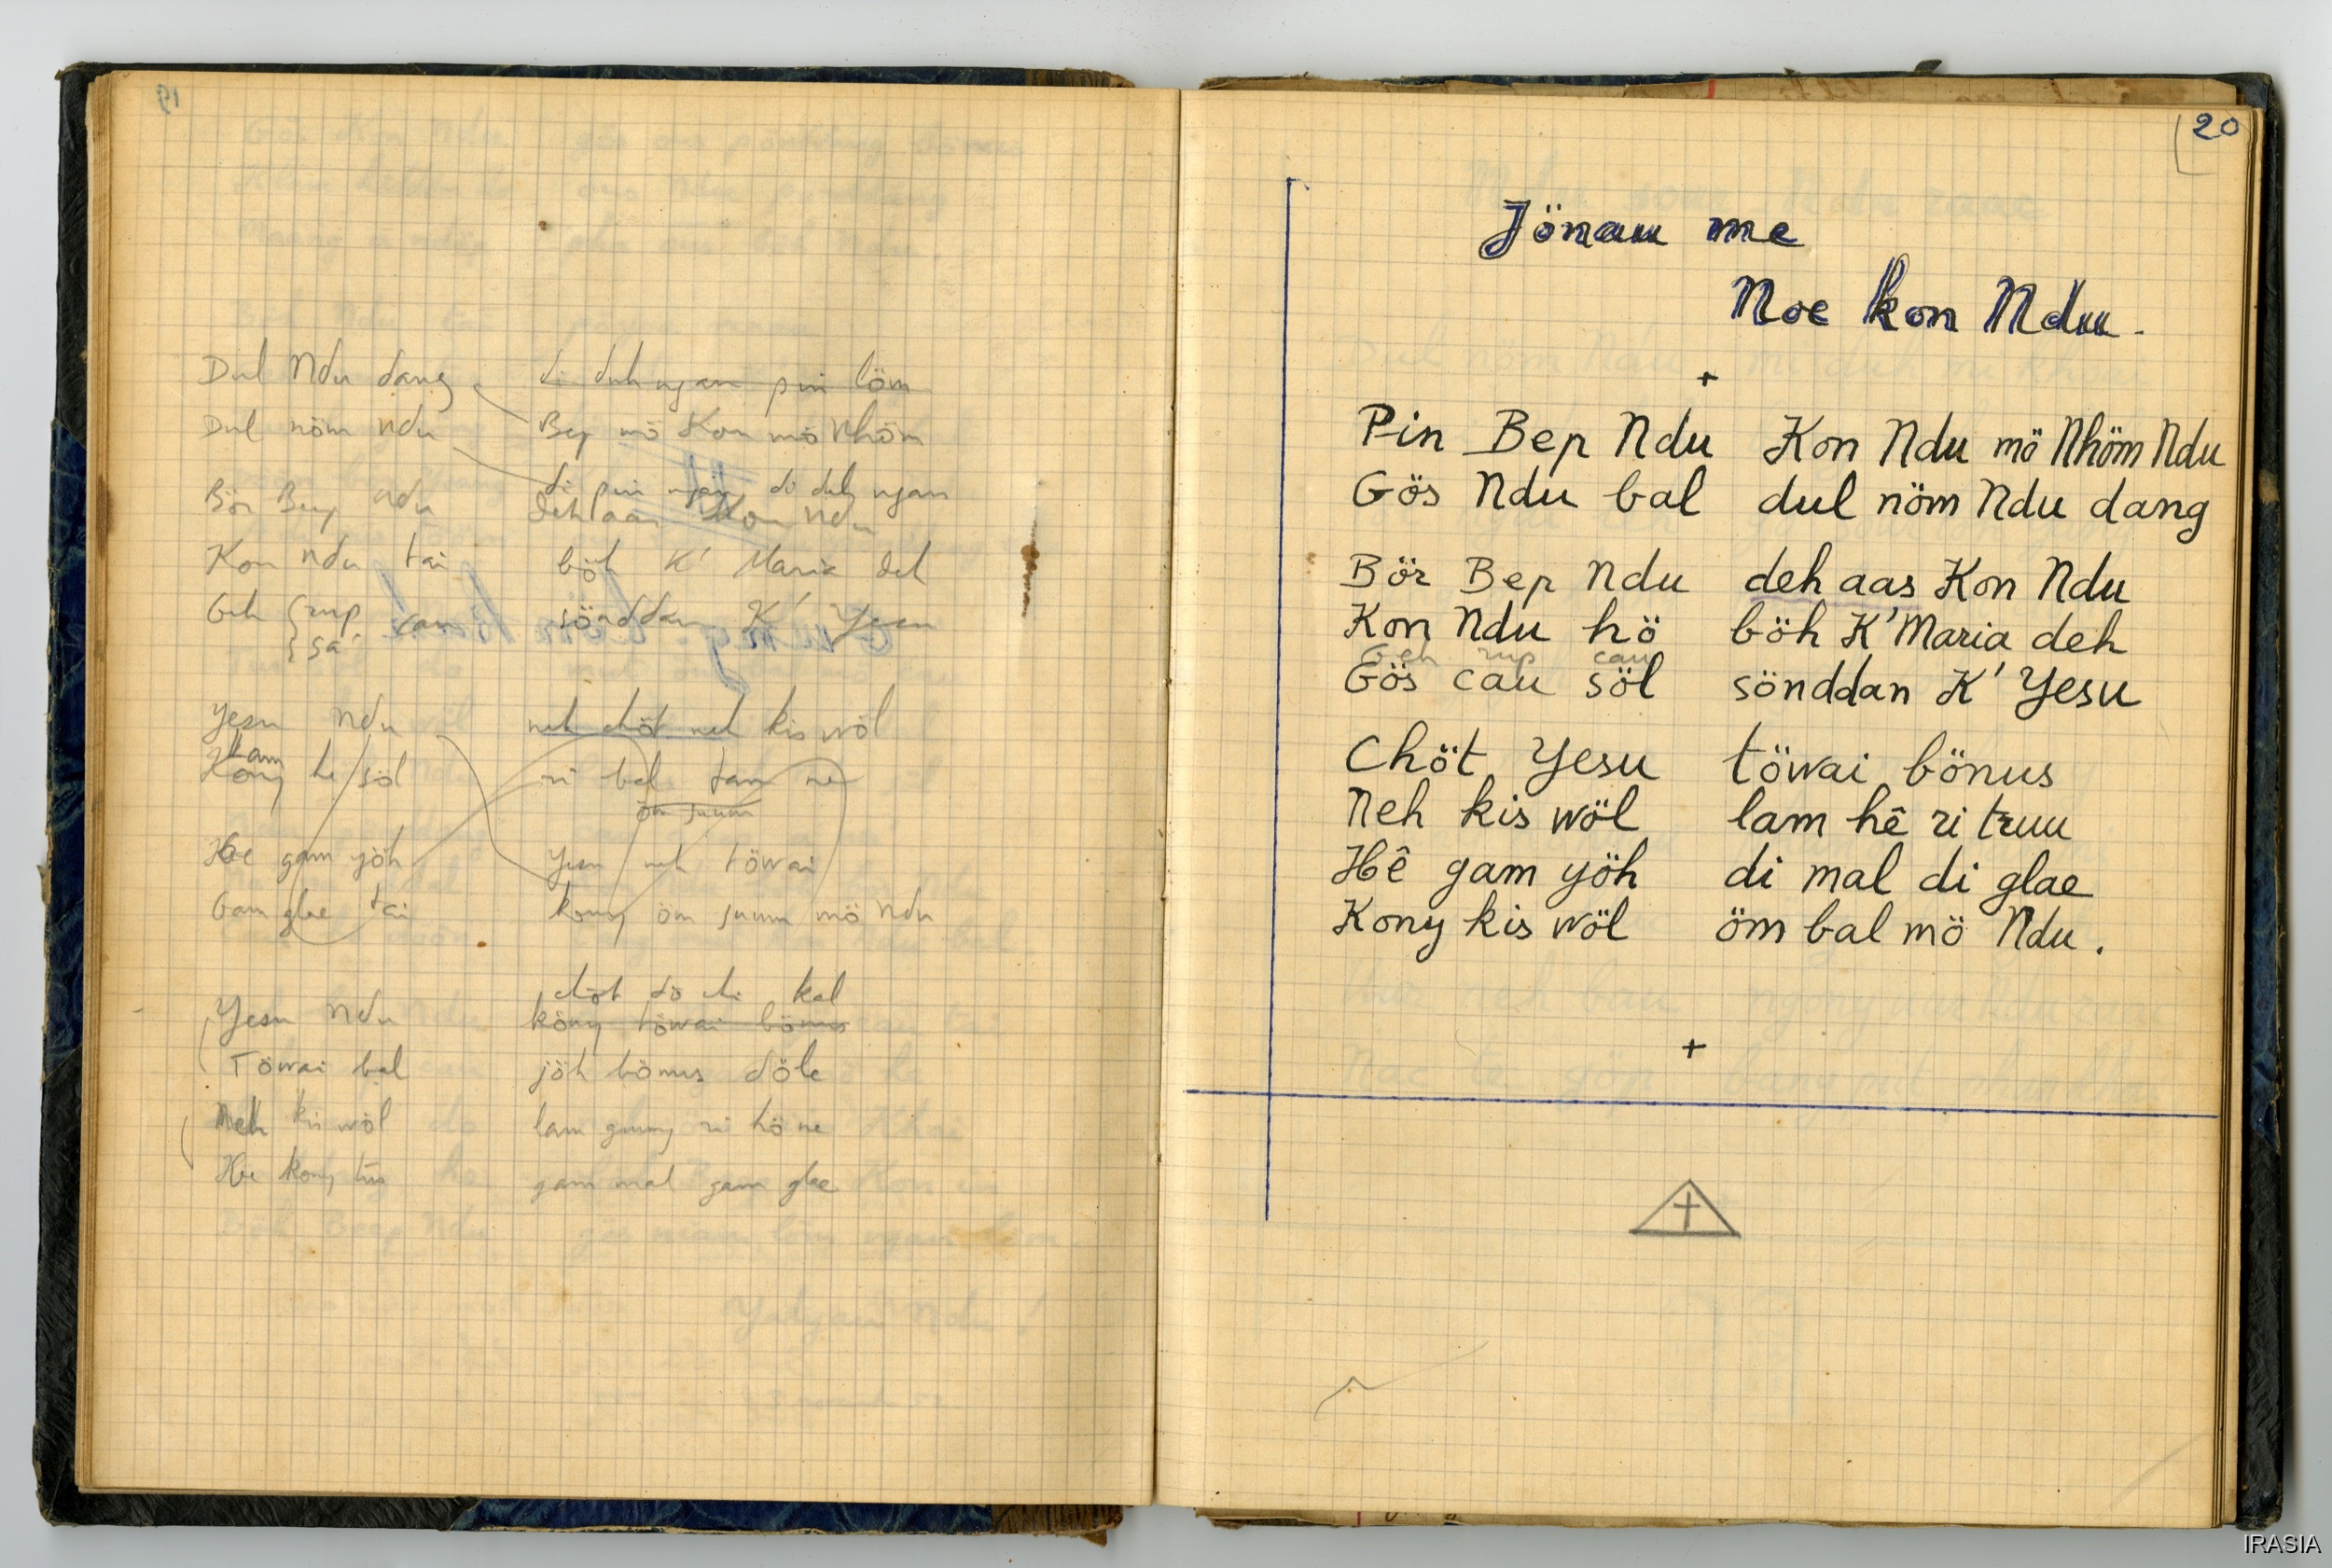 Dul Ndu dang di duh ngan pin löm
Dul nöm Ndu Bep mö Kon mö Nhöm
di pin ngan di duh ngan
Bör Bep Ndu deh aas Kon Ndu
Kon Ndu tai böh K' Maria deh
Geh rup cau sönddan K' Yesu
sa
Yesu Ndu neh chöt neh kis wöl
lam
Kony he söl ri bal tam ne
öm suum
Hê gam yöh Yesu neh töwai
Gam glae tai kony öm suum mö Ndu
chöt dö di kal
Yesu Ndu köny töwai bönus
Töwai bal jöh bönus döle
Neh kis wöl lam gumy ri hö ne
Hê kony gam mal gam glae
20
Jönau me
Noe kon Ndu.
+
Pin Bep Ndu Kon Ndu mö Nhöm Ndu
Gös Ndu bal dul nöm Ndu dang
Bör Bep Ndu deh aas Kon Ndu
Kon Ndu hö böh K'Maria deh
Geh rup cau
Gös cau söl sönddan K' Yesu
Chöt Yesu töwai bönus
Neh kis wöl lam hê ri truu
Hê gam yöh di mal di glae
Kony kis wöl öm bal mö Ndu.
+
IRASIA